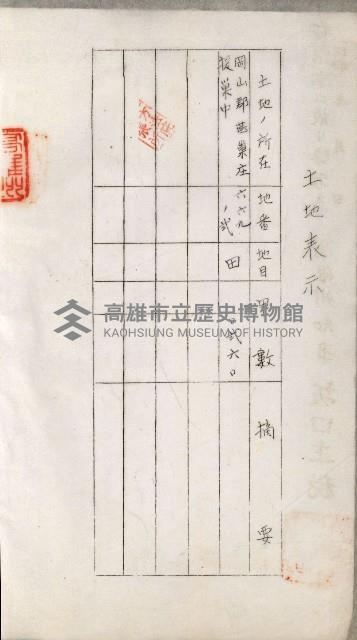 土地表示
土地ノ所在
地番
地目
甲數
摘要
岡山郡燕巢庄
援巢中
六六九
ノ貳
田
貳六〇
高雄市立歷史博物館
KAOHSIUNG MUSEUM OF HISTORY